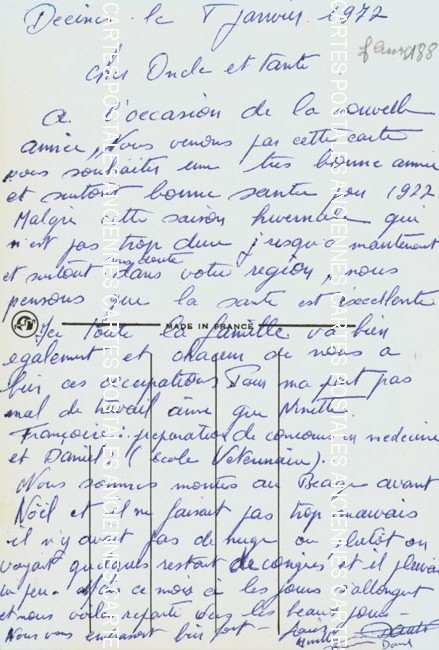 Decines le 1 janvier 1972
Cher Oncle et tante
A l'occasion de la nouvelle
année, Nous venons par cette carte
vous souhaiter une très bonne année
et surtout bonne sante pour 1972
Malgré cette saison hivernale qui
n'est pas trop dure jusqu'a maintenant
et surtout dans votre région, nous
pensons que la sante est excellente
MADE IN FRANCE
Ici toute la famille va bien
egalement et chacun de nous a
bien ces occupations
mal de travail ainsi que Ninette.
Françoise : preparation de concours en medecine
et Daniel : (école Veterinaire).
Nous sommes montés au avant
Noël et il ne faisait pas trop mauvais
il n'y avait pas de neige ou plutôt on
voyait quelques restant de congres et il pleuvait
un peu. ce mois à les jours s'allongent
et nous voila repartis vers les beaux jours
Nous vous embrassons bien fort
CARTES POSTALES ANCIENNES CARTES POSTALES ANCIENNES